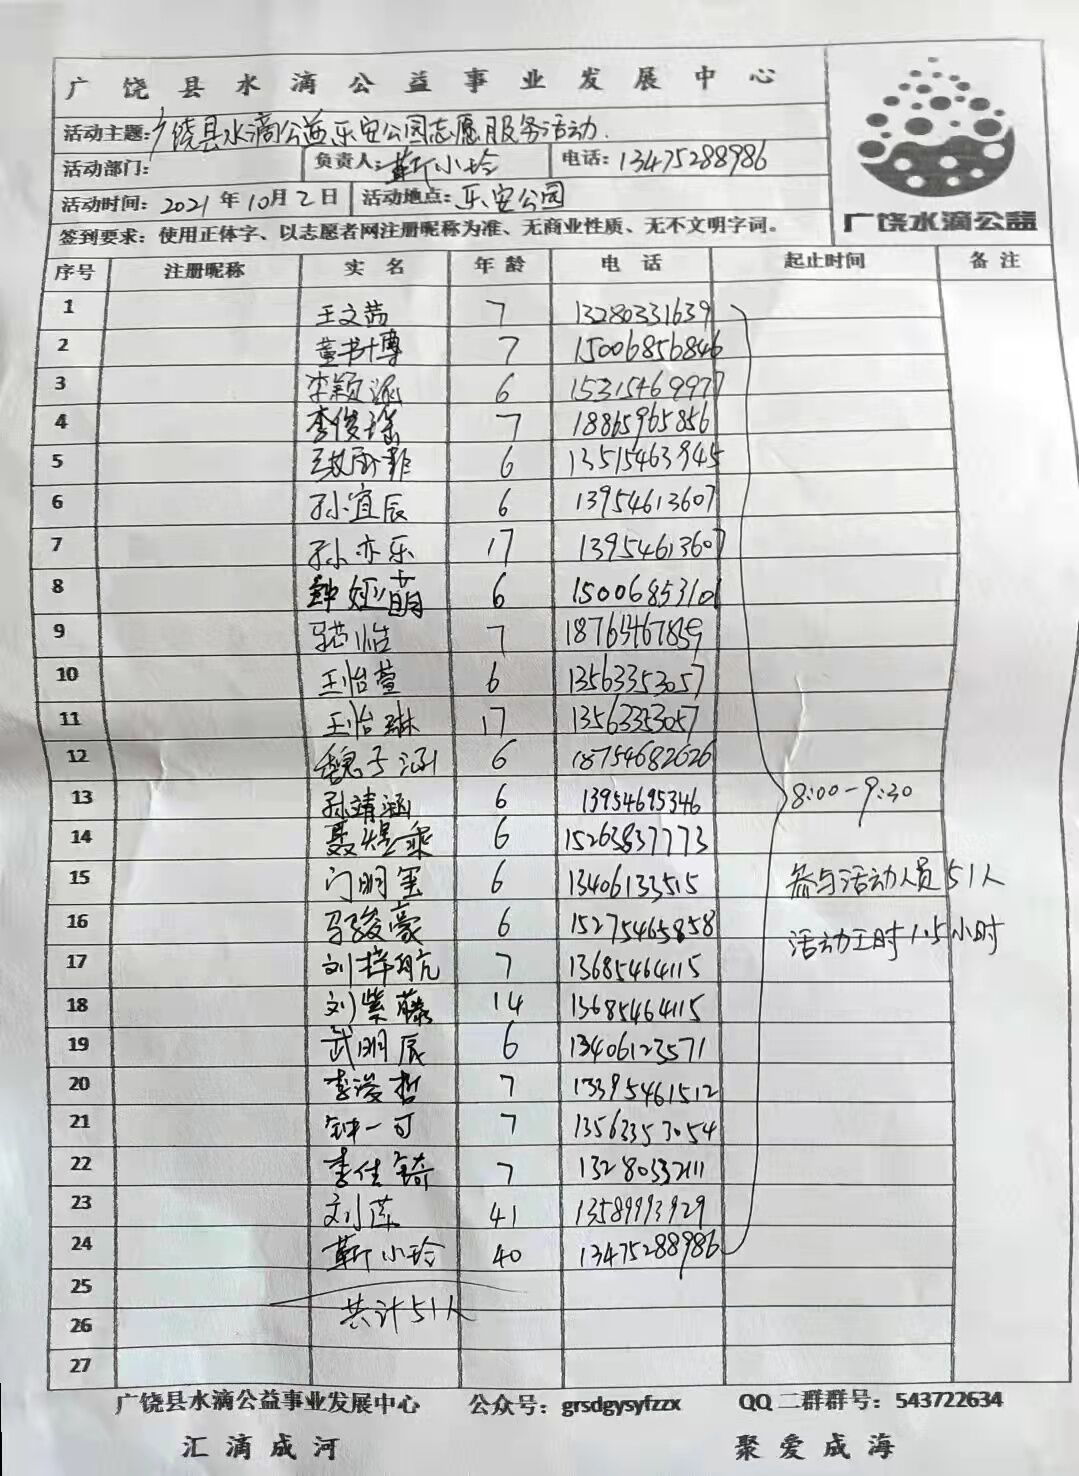 广饶县水滴公益事业发展中心
活动主题:广饶县水滴公益乐安公园志愿服务活动.
活动部门: 负责人:靳小玲 电话:13475288986
活动时间:2021年10月2日 活动地点:乐安公园
签到要求：使用正体字、以志愿者网注册昵称为准、无商业性质、无不文明字词。
广饶水滴公益
序号 注册昵称 实名 年龄 电话 起止时间 备注
1 王文茜 7 13280331639
2 董书博 7 15006856846
3 李颖涵 6 15315469977
4 李俊瑶 7 18865965856
5 6 13515463945
6 孙宜辰 6 13954613607
7 孙亦乐 17 13954613607
8 钟娅萌 6 15006853101
9 7 18765467859
10 王怡萱 6 13563353057
11 王怡琳 17 13563353057
12 魏子涵 6 18754682626
13 孙靖涵 6 13954695346 8:00-9:30
14 聂煜 6 15263837773
15 门明玺 6 13406133515 参与活动人员51人
16 马骏豪 6 15275465858 活动工时1.5小时
17 刘梓航 7 13685464115
18 刘紫藤 14 13685464115
19 武明辰 6 13406123571
20 李浚哲 7 13395461512
21 钟一可 7 13563353054
22 李佳锜 7 13280332111
23 刘莲 41 13589993929
24 靳小玲 40 13475288986
25
26 共计51人
27
广饶县水滴公益事业发展中心 公众号：grsdgysyfzzx QQ二群群号：543722634
汇滴成河 聚爱成海